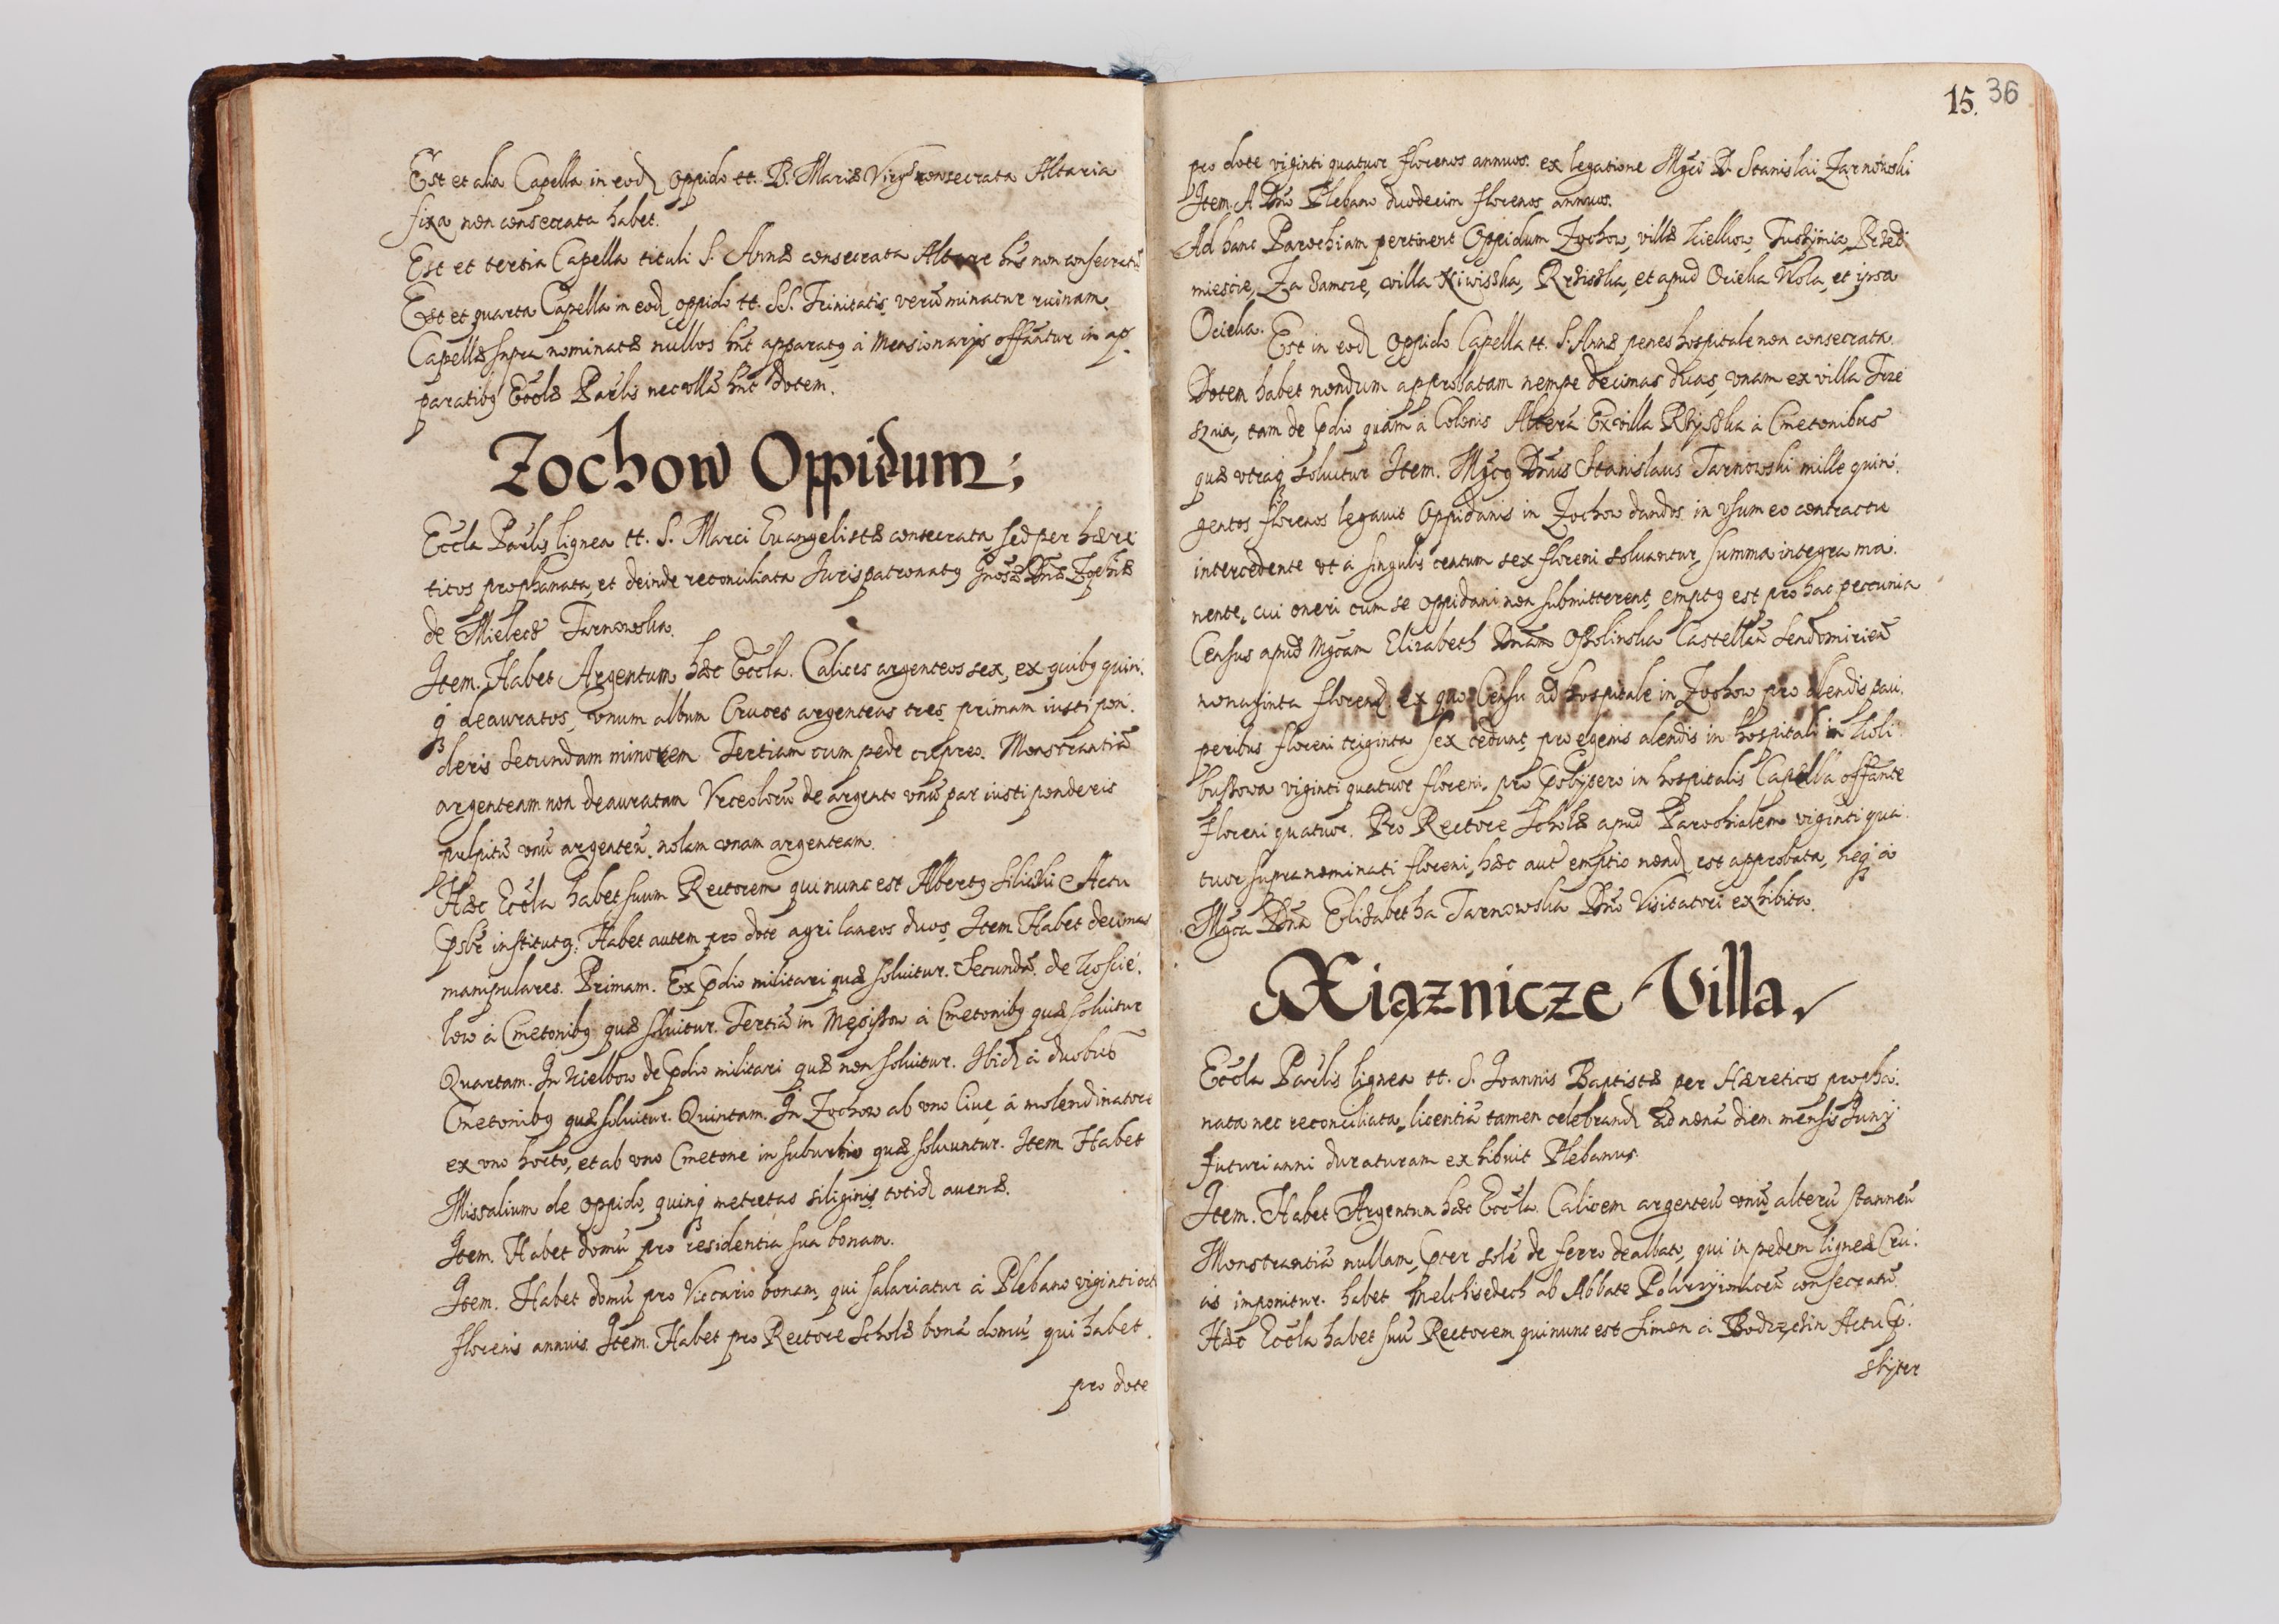 Est et alia Capella in eod oppido tt. B. Mariæ Virgs consecrata Altaria
fixa non consecrata habet.
Est et tertia Capella tituli S. Annæ consecrata Altare hns non consecratū
Est et quarta Capella in eod oppido tt. SS. Trinitatis, verū minatur ruinam.
Capellæ supra nominatæ nullos hnt apparatq, à Mansionarijs offantur in ap.
paratibq Eccłæ Parlis nec ullā hnt dotem.
Zochow Oppidum;
Eccla Parlis, lignea tt. S. Marci Euangelistæ consecrata, sed per hære
ticos prophanata, et deinde reconciliata Jurispatronatq Gnosæ Dnæ Zophiæ
de Mielecz Tarnowska.
Item. Habet Argentum hæc Eccla. Calices argenteos sex, ex quibq quin.
q deauratos, vnum album Cruces argenteas tres, primam iusti pon.
deris Secundam minorem Tertiam cum pede cupreo. Monstrantiā
argenteam non deauratam Vrceolorū de argento vnū par iusti ponderis
pulpitū vnū argenteū, nolam vnam argenteam.
Hæc Eccla habet suum Rectorem qui nunc est Albertq Actu
Psbr institutq: Habet autem pro dote agri laneos duos, Item Habet decimas
manipulares. Primam. Ex Pdio militari quæ soluitur. Secundā. de Koscie.
low à Cmetonibq quæ soluitur. Tertiā in à Cmetonibq quæ soluitur
Quartam. In Kielkow de Pdio militari quæ non soluitur. Ibid à duobus
Cmetonibq quæ soluitur. Quintam. In Zochow ab vno Ciue, à molendinatore
ex vno horto, et ab vno Cmetone in suburbio quæ soluuntur. Item Habet
Missalium de oppido, quinq metretas siliginis, totid auenæ.
Item. Habet domū pro residentia sua bonam.
Item. Habet domū pro Viccario bonam, qui salariatur à Plebano viginti oct
florenis annuis. Item. Habet pro Rectore Scholæ bonā domū, qui habet.
pro dote
15. 36
pro dote viginti quatuor florenos annuos. ex legatione Mgci D. Stanislai Zarnowski
Item. A Dno Plebano duodecim florenos annuos.
Ad hanc Parochiam pertinent Oppidum Zochow, villæ Kielkow, Tuszimia, Przedi
miescie, Za Samcze, villa Rziska, et apud Ocieka Wola, et ipsa
Ocieka. Est in eod oppido Capella tt. S. Annæ penes hospitale non consecrata.
Dotem habet nondum approbatam nempe decimas duas, vnam ex villa Trze
sznia, tam de Pdio quàm à Colonis Alterā Ex villa Rzyska à Cmetonibus
quæ vtraq soluitur Item. Mgcq Dnus Stanislaus Tarnowski mille quin.
gentos florenos legauit Oppidanis in Zochow dandos in vsum eo contractu
intercedente vt à singulis centum sex floreni soluantur, summa integra ma.
nente, cui oneri cum se oppidani non submitterent, emptq est pro hac peccunia
Census apud Mgcam Elizabeth Dnam Ossolinska Castellanā Sendomirien
nonaginta floren ex quo Censu ad hospitale in Zochow pro alendis pau.
peribus floreni triginta sex cedunt, pro egenis alendis in hospitali in Kol
bussowa viginti quatuor floreni, pro Psbytero in hospitalis Capella offante
floreni quatuor. Pro Rectore Scholæ apud Parochialem viginti qua
tuor supra nominati floreni, hæc aut emptio nond est approbata, neq à
Mgca Dna Elizabetha Tarnowska Dno Visitatori exhibita.
Xiąznicze Villa
Eccla Parlis lignea tt. S. Joannis Baptistæ per Hæreticos propha.
nata nec reconciliata, licentiā tamen celebrand ad nonā diem mensis Junij
futuri anni duraturam exhibuit Plebanus.
Item. Habet Argentum hæc Eccla. Calicem argenteū vnū, alterū stanneū
Monstrantiā nullam, Pter solē de ferro dealbato, qui in pedem ligneæ Cru.
cis imponitur. habet Melchisedech ab Abbate consecratū.
Hæc Eccla habet suū Rectorem qui nunc est Simon à Bodzęchin Actu P.
sbyter